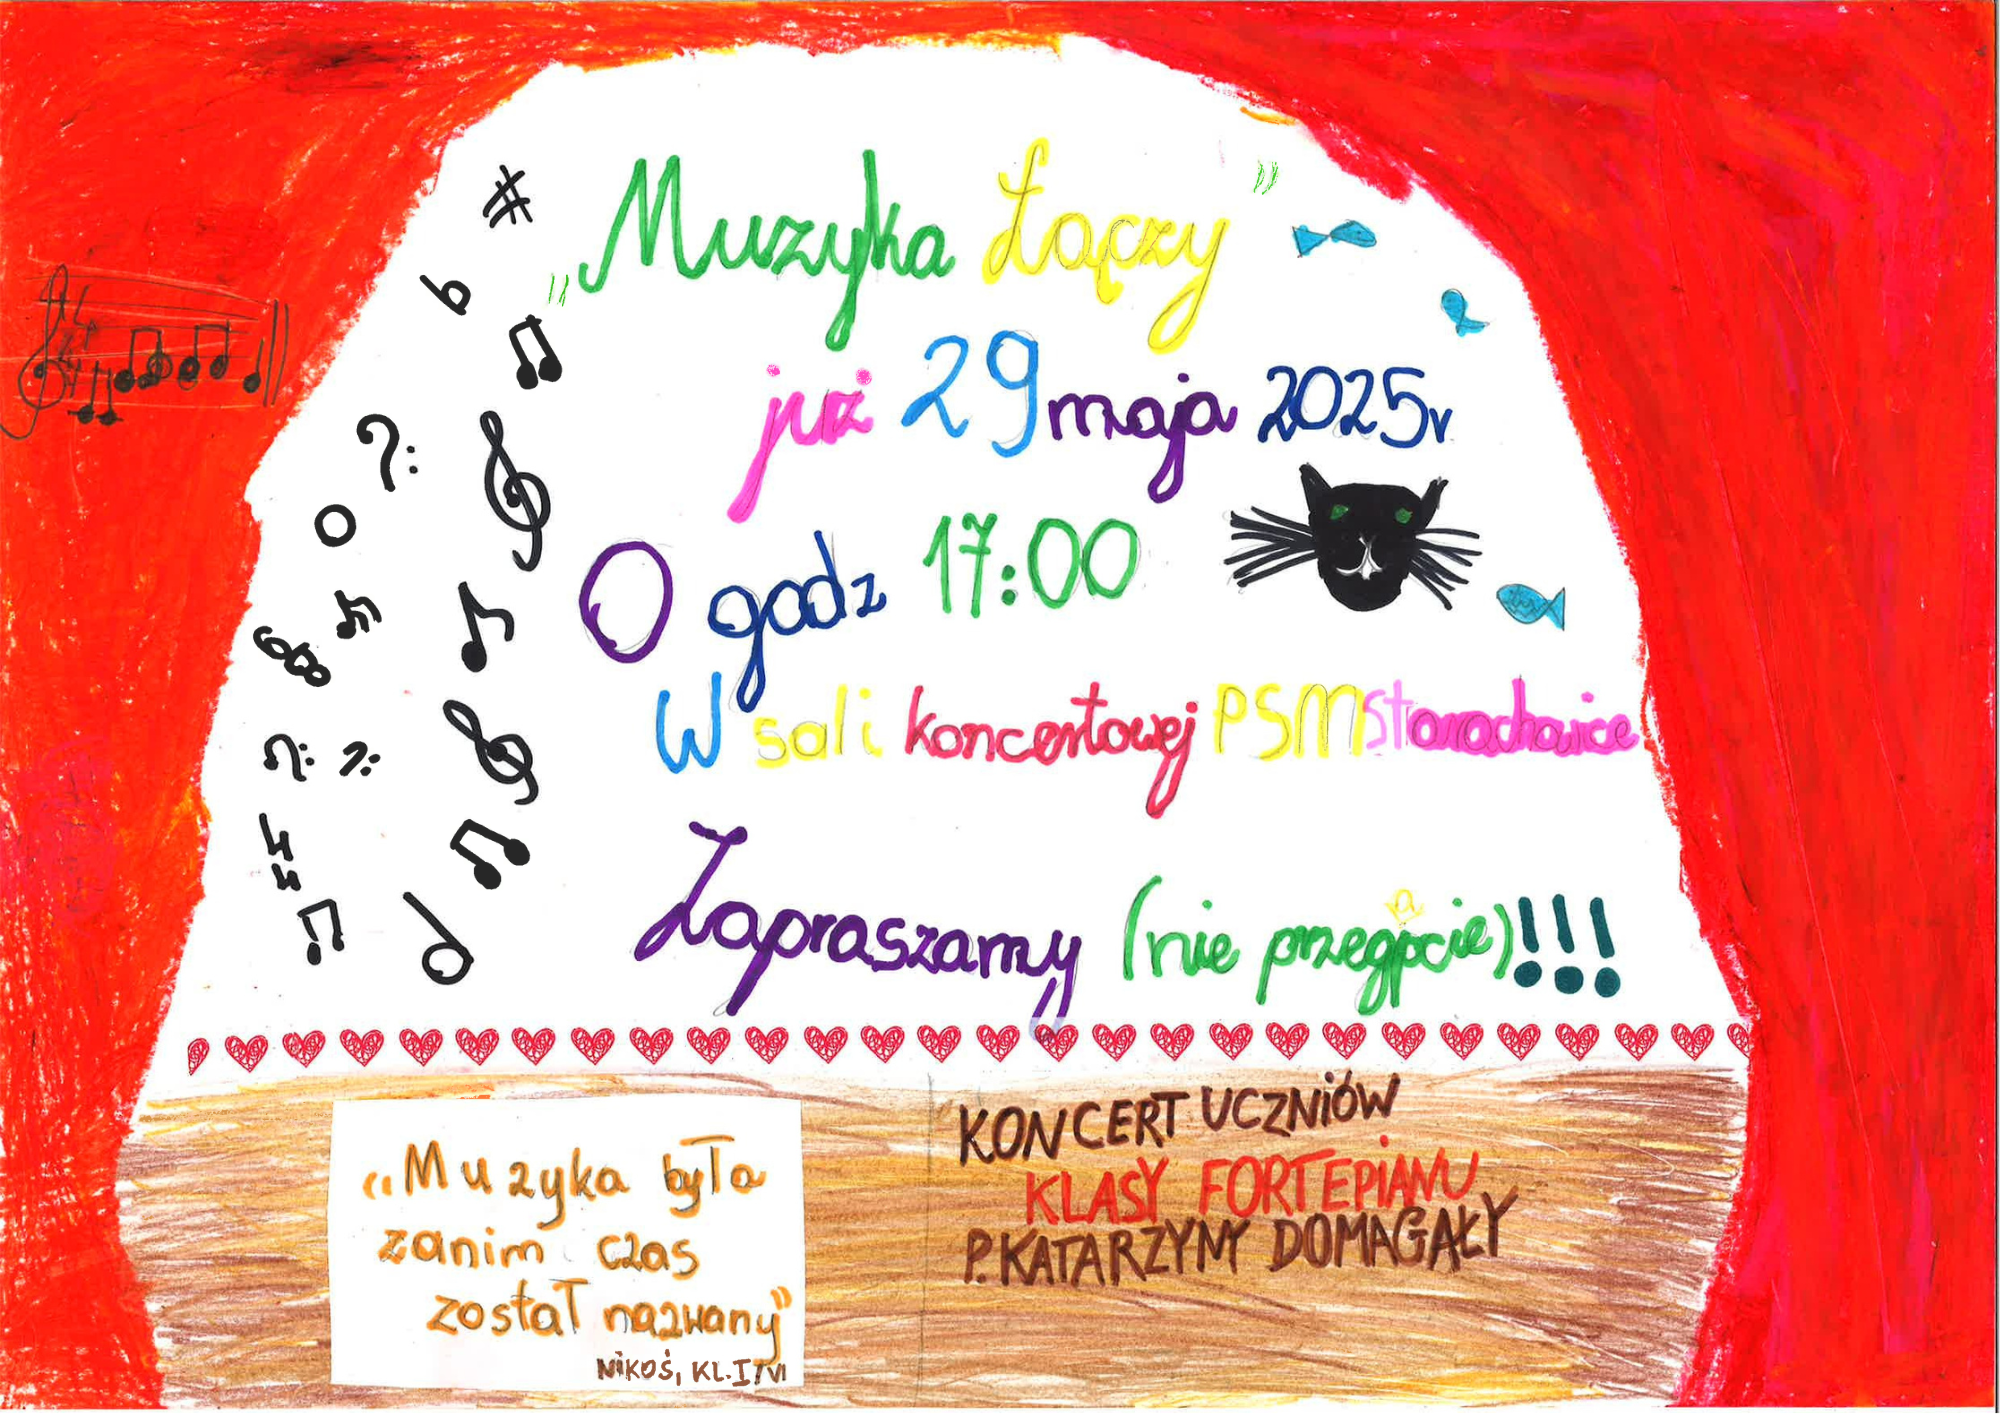 „Muzyka Łączy”
już 29 maja 2025r
O godz 17:00
W sali koncertowej PSM Starachowice
Zapraszamy (nie przegapcie)!!!
„Muzyka była
zanim czas
został nazwany”
NIKOŚ, KL.I/VI
KONCERT UCZNIÓW
KLASY FORTEPIANU
P. KATARZYNY DOMAGAŁY